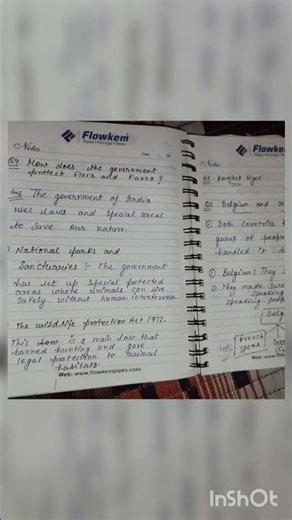 Flowkem
Pipes • Fittings • Tanks
Notes
Q4 How does the government
protect Flora and Fauna?
Ans The government of India
uses laws and special areas
to save our nature.
National parks and
Sanctuaries :- The government
has set up special protected
areas where animals can live
safely without human interference
The wildlife protection Act 1972.
This is a main law that
banned hunting and gave
legal protection to animal
habitats.
Web: www.flowkempipes.com
Flowkem
Notes
Project tiger
Belgium and
Both countries
group of people
handled it
Belgium: They
They made sure
speaking
speaking
Belg
French
speak
Web: www.fl
InShOt